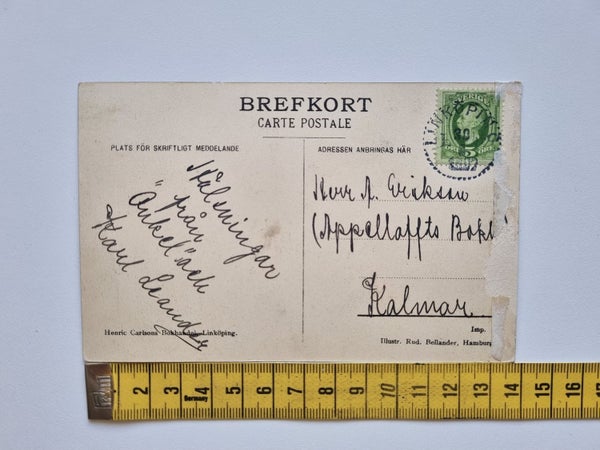 BREFKORT
CARTE POSTALE
PLATS FÖR SKRIFTLIGT MEDDELANDE
ADRESSEN ANBRINGAS HÄR
SVERIGE
5
LINKÖPING
Hälsningar
från
"Onkel" och
Karl Leander
Herr A. Erickson
(Appelloffts Bokh
Kalmar
Henric Carlsons Bokhandel, Linköping.
Imp.
Illustr. Rud. Bellander, Hamburg
2 3 4 5 6 7 8 9 10 11 12 13 14 15 16 17
Germany